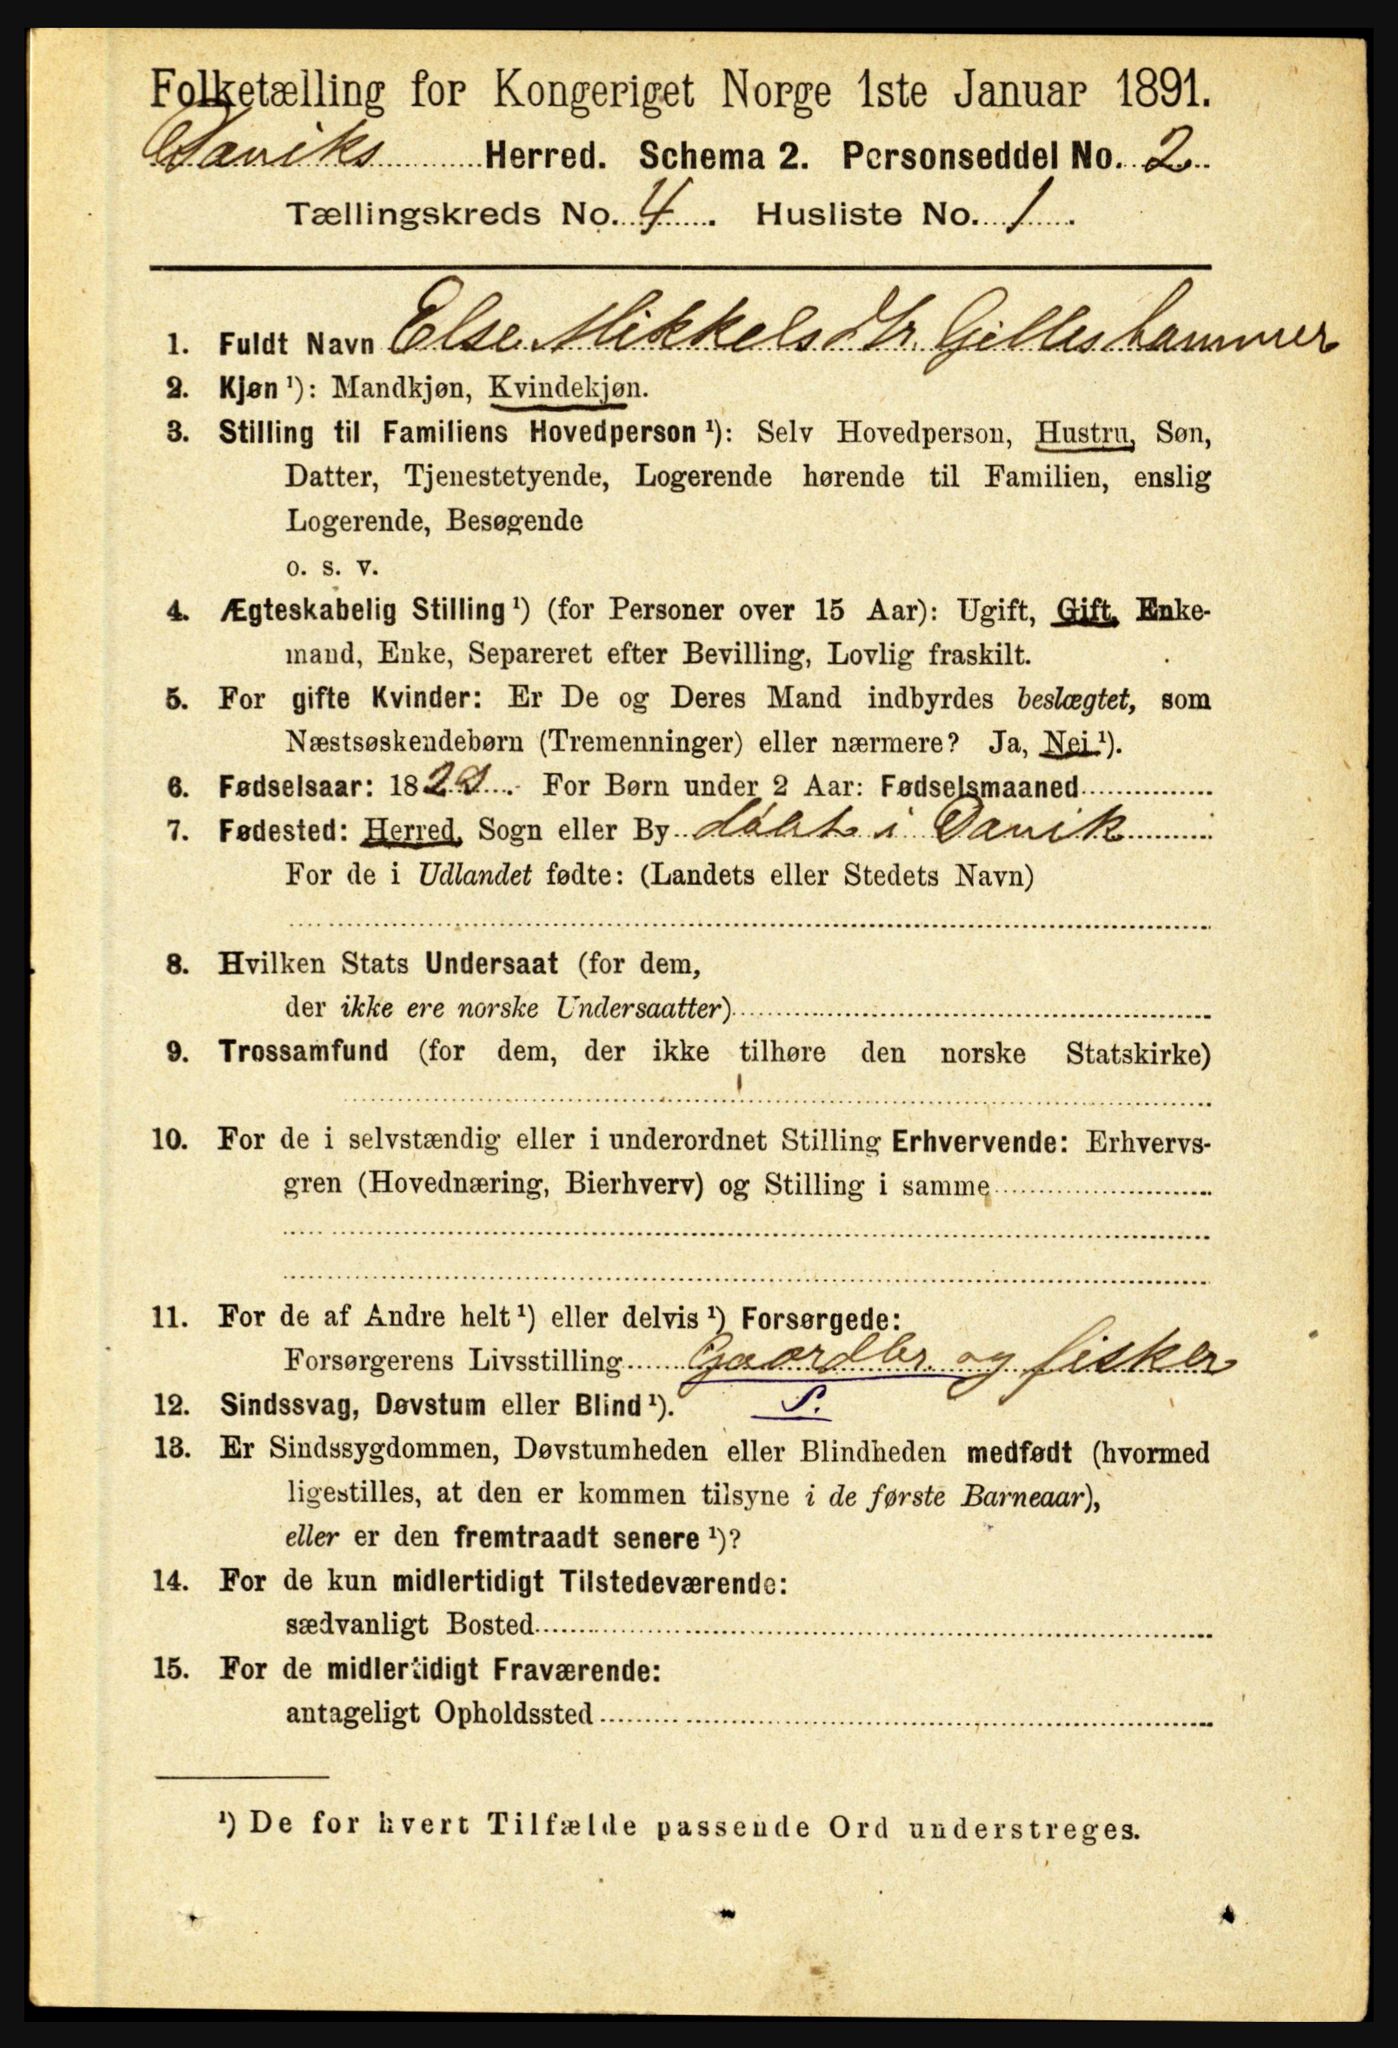 Folketælling for Kongeriget Norge 1ste Januar 1891.
Daviks Herred. Schema 2. Personseddel No. 2
Tællingskreds No. 4. Husliste No. 1.
1. Fuldt Navn Else Mikkelsdtr. Gilleshammer
2. Kjøn ¹): Mandkjøn, Kvindekjøn.
3. Stilling til Familiens Hovedperson ¹): Selv Hovedperson, Hustru, Søn,
Datter, Tjenestetyende, Logerende hørende til Familien, enslig
Logerende, Besøgende
o. s. v.
4. Ægteskabelig Stilling ¹) (for Personer over 15 Aar): Ugift, Gift, Enke-
mand, Enke, Separeret efter Bevilling, Lovlig fraskilt.
5. For gifte Kvinder: Er De og Deres Mand indbyrdes beslægtet, som
Næstsøskendebørn (Tremenninger) eller nærmere? Ja, Nei ¹).
6. Fødselsaar: 18 . For Børn under 2 Aar: Fødselsmaaned
7. Fødested: Herred, Sogn eller By i Davik
For de i Udlandet fødte: (Landets eller Stedets Navn)
8. Hvilken Stats Undersaat (for dem,
der ikke ere norske Undersaatter)
9. Trossamfund (for dem, der ikke tilhøre den norske Statskirke)
10. For de i selvstændig eller i underordnet Stilling Erhvervende: Erhvervs-
gren (Hovednæring, Bierhverv) og Stilling i samme
11. For de af Andre helt ¹) eller delvis ¹) Forsørgede:
Forsørgerens Livsstilling Gaardbr. og fisker
12. Sindssvag, Døvstum eller Blind ¹). S.
13. Er Sindssygdommen, Døvstumheden eller Blindheden medfødt (hvormed
ligestilles, at den er kommen tilsyne i de første Barneaar),
eller er den fremtraadt senere ¹)?
14. For de kun midlertidigt Tilstedeværende:
sædvanligt Bosted
15. For de midlertidigt Fraværende:
antageligt Opholdssted
¹) De for hvert Tilfælde passende Ord understreges.